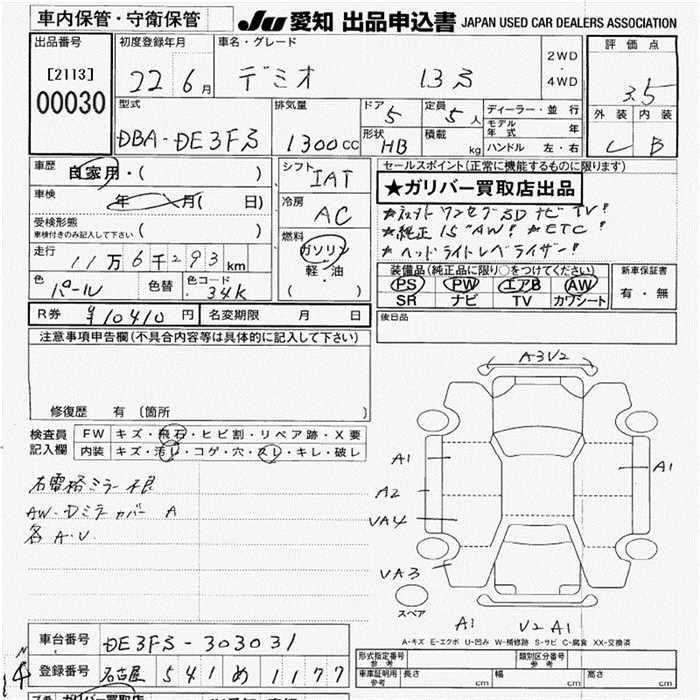 車内保管・守衛保管
JU 愛知 出品申込書 JAPAN USED CAR DEALERS ASSOCIATION
出品番号
[2113]
00030
初度登録年月
22 6月
車名・グレード
デミオ 13S
2WD
・
4WD
評価点
3.5
外装 内装
C B
型式
DBA-DE3FS
排気量
1300cc
ドア 5
形状 HB
定員 5人
積載 kg
ディーラー・並行
モデル年式 年
ハンドル 左・右
車歴 自家用・( )
車検 年 月( 日)
受検形態
車検付きのみ記入して下さい ( )
走行 11万6千293km
色 パール
色替
色コード 34K
シフト IAT
冷房 AC
燃料
ガソリン
軽・油
( )
セールスポイント(正常に機能するものに限ります)
★ガリバー買取店出品
ワンセグSDナビTV!
★純正15"AW! ★ETC!
★ヘッドライトレベライザー!
装備品(純正品に限り○をつけてください)
PS PW エアB AW
SR ナビ TV カワシート
新車保証書
有・無
R券 ¥10410円
名変期限 月 日
後日品
注意事項申告欄(不具合内容等は具体的に記入して下さい)
修復歴 有 (箇所 )
検査員記入欄
FW キズ・飛石・ヒビ割・リペア跡・X要
内装 キズ・汚れ・コゲ・穴・スレ・キレ・破レ
右電格ミラー不良
AW・Dミラーカバー A
各A・U
A3V2
A1
A1
A2
VA4
VA3
スペア
A1
V2 A1
A・キズ E・エクボ U・凹み W・補修跡 S・サビ C・腐食 XX・交換済
車台番号 DE3FS-303031
登録番号 名古屋 541 め 1177
型式指定番号 参考
類別区分番号 参考
車庫証明用 参考 長さ cm 幅 cm 高さ cm
ガリバー買取店